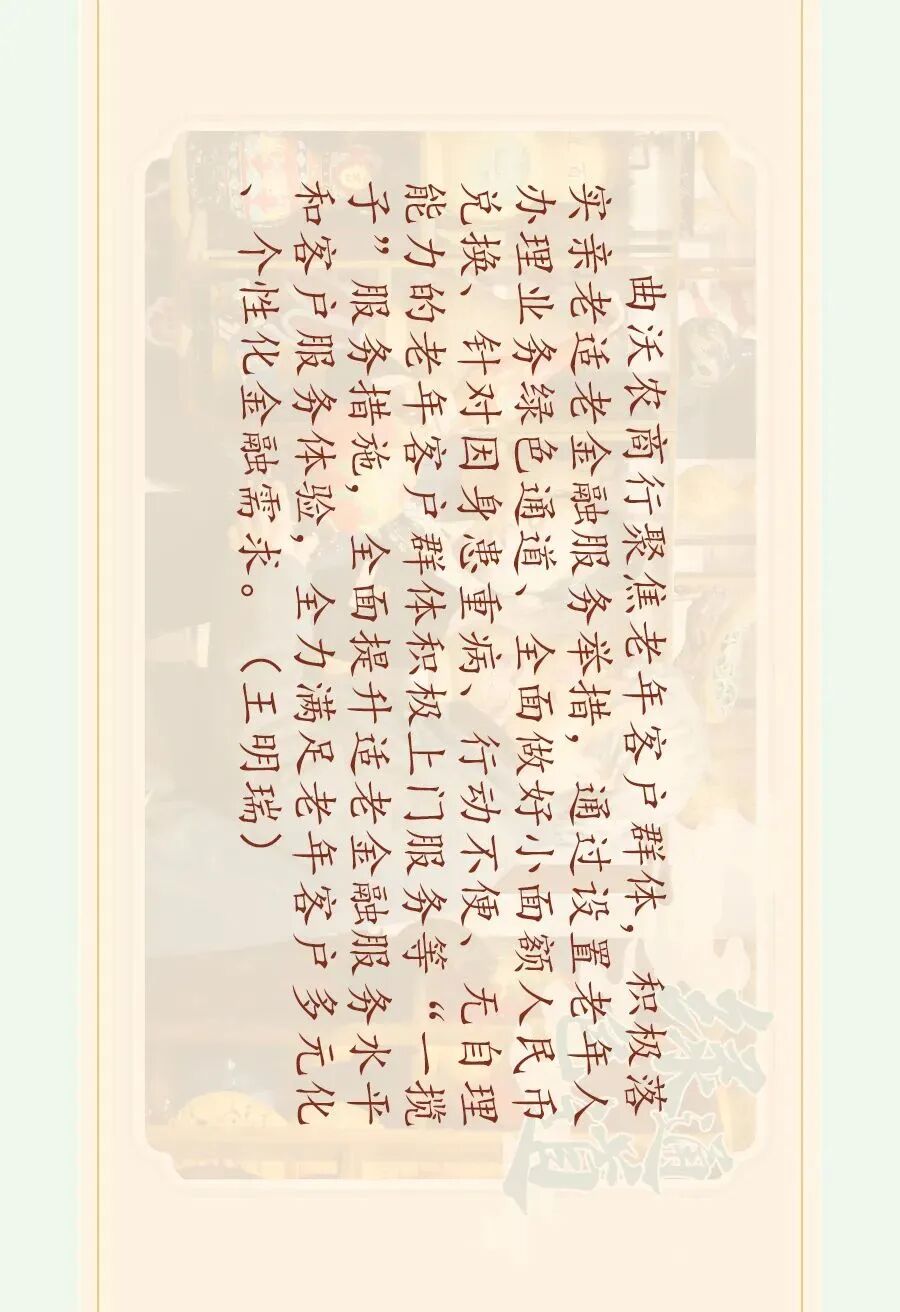 曲沃农商行聚焦老年客户群体，积极落
实亲老适老金融服务举措，通过设置老年人
办理业务绿色通道、全面做好小面额人民币
兑换、针对因身患重病、行动不便、无自理
能力的老年客户群体积极上门服务等“一揽
子”服务措施，全面提升适老金融服务水平
和客户服务体验，全力满足老年客户多元化
、个性化金融需求。（王明瑞）
绿色
通道